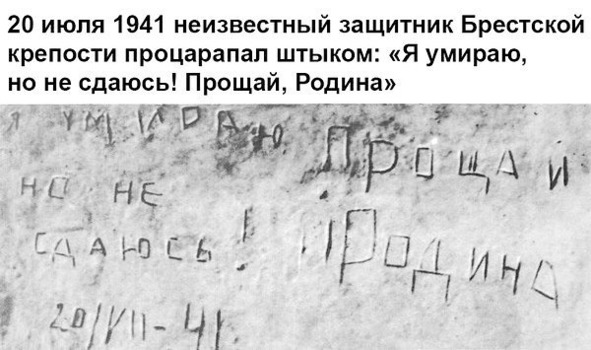 20 июля 1941 неизвестный защитник Брестской
крепости процарапал штыком: «Я умираю,
но не сдаюсь! Прощай, Родина»
Я УМИРАЮ
НО НЕ
СДАЮСЬ!
20/VII-41.
ПРОЩАЙ
РОДИНА